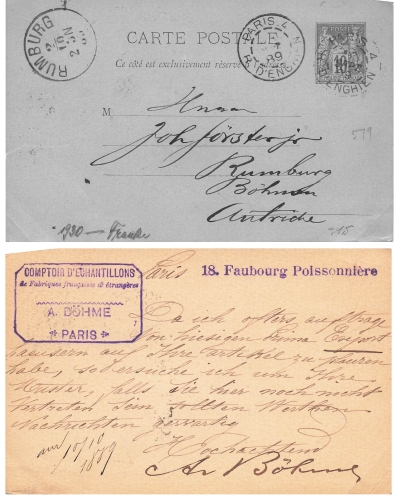 RUMBURG
CARTE POSTALE
PARIS
R. D'ENGHIEN
Ce côté est exclusivement réservé
M Herrn
Joh Förster jr
Rumburg
Böhmen
Autriche
1930 — Franke
579
COMPTOIR D'ÉCHANTILLONS
de Fabriques françaises & étrangères
A. DÖHME
PARIS
Paris 18. Faubourg Poissonnière
Da ich öfters auftrage
von hiesigen prima Export
häusern auf Ihre Artikel zu
habe, so ersuche ich um Ihre
Muster, falls Sie hier noch nicht
vertreten sein sollten. Werthen
Nachrichten
Hochachtend
10/10
1889